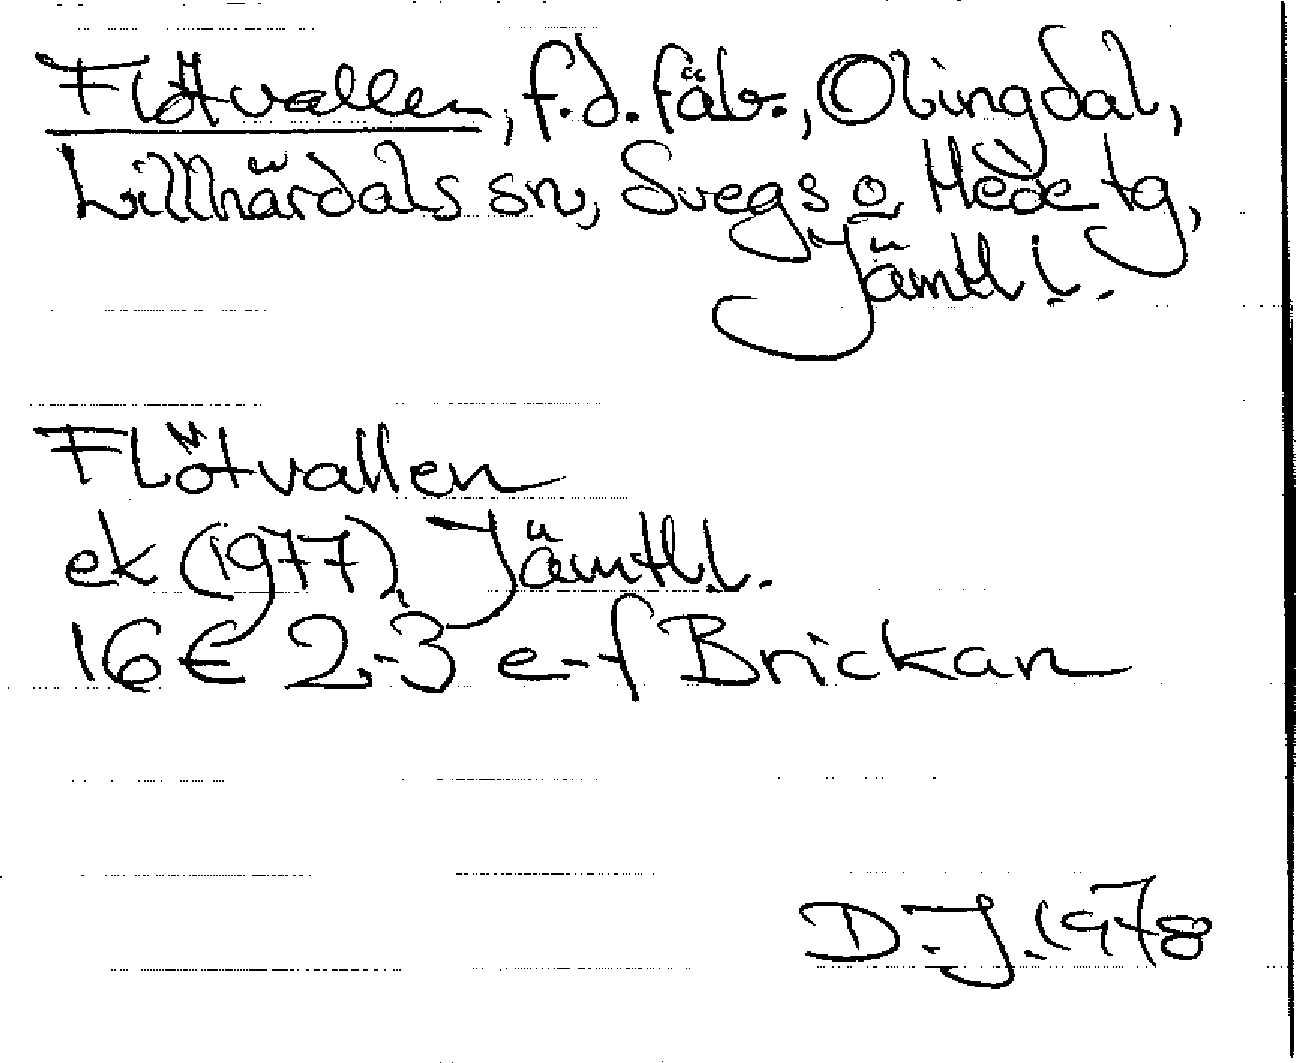 Flötvallen, f.d. fäb., Olingdal,
Lillhärdals sn, Svegs o Hede tg,
Jämtl l.
Flötvallen
ek (1977), Jämtl.l.
16 E 2-3 e-f Brickan
D.J. 1978